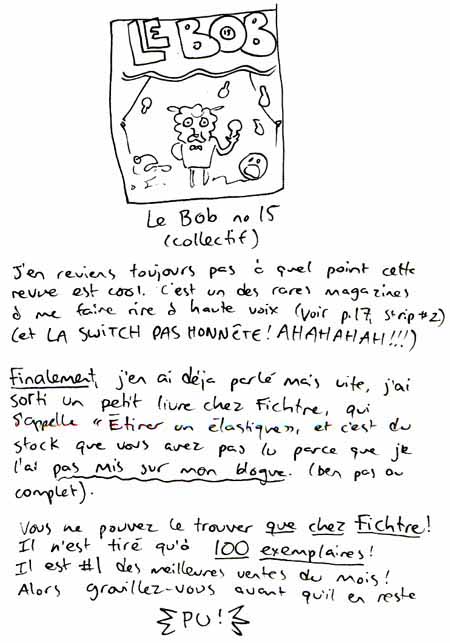 LE BOB
15
Le Bob no 15
(collectif)
J'en reviens toujours pas à quel point cette
revue est cool. C'est un des rares magazines
à me faire rire à haute voix (Voir p.17, strip #2)
(et LA SWITCH PAS HONNÊTE! AHAHAHAH!!!)
Finalement, j'en ai déja parlé mais vite, j'ai
sorti un petit livre chez Fichtre, qui
s'appelle "Étirer un élastique", et c'est du
stock que vous avez pas lu parce que je
l'ai pas mis sur mon blogue. (ben pas au
complet).
Vous ne pouvez le trouver que chez Fichtre!
Il n'est tiré qu'à 100 exemplaires!
Il est #1 des meilleures ventes du mois!
Alors grouillez-vous avant qu'il en reste
PU!